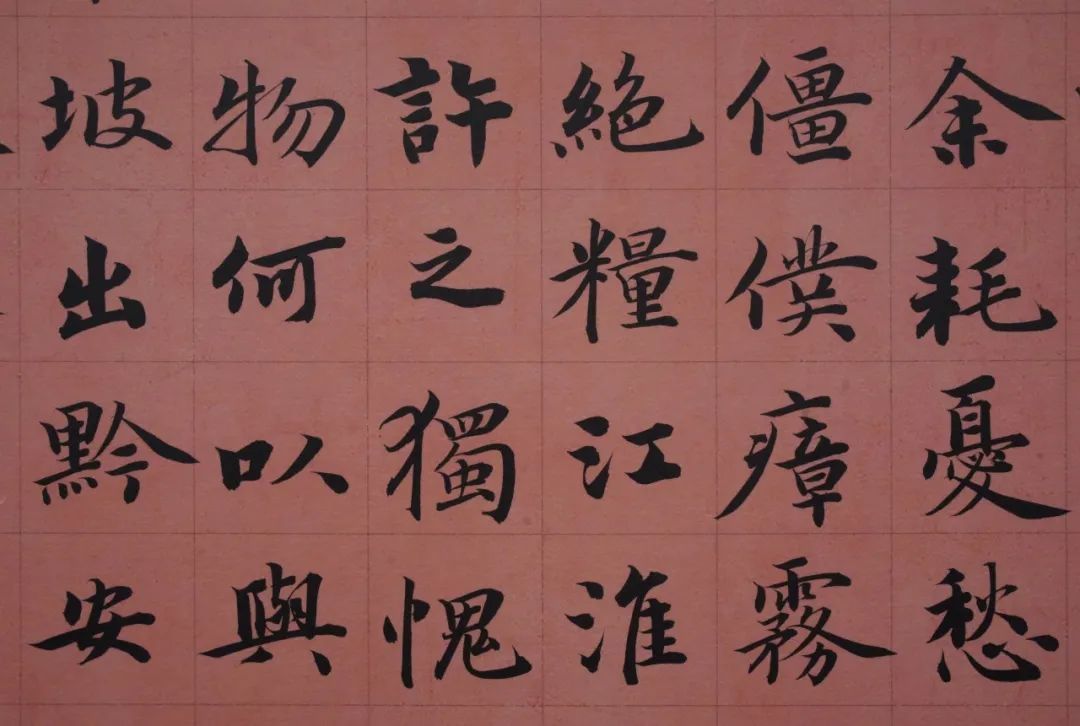 余耗憂愁
僵僕瘴霧
絶糧江淮
許之獨愧
物何以與
坡出黔安